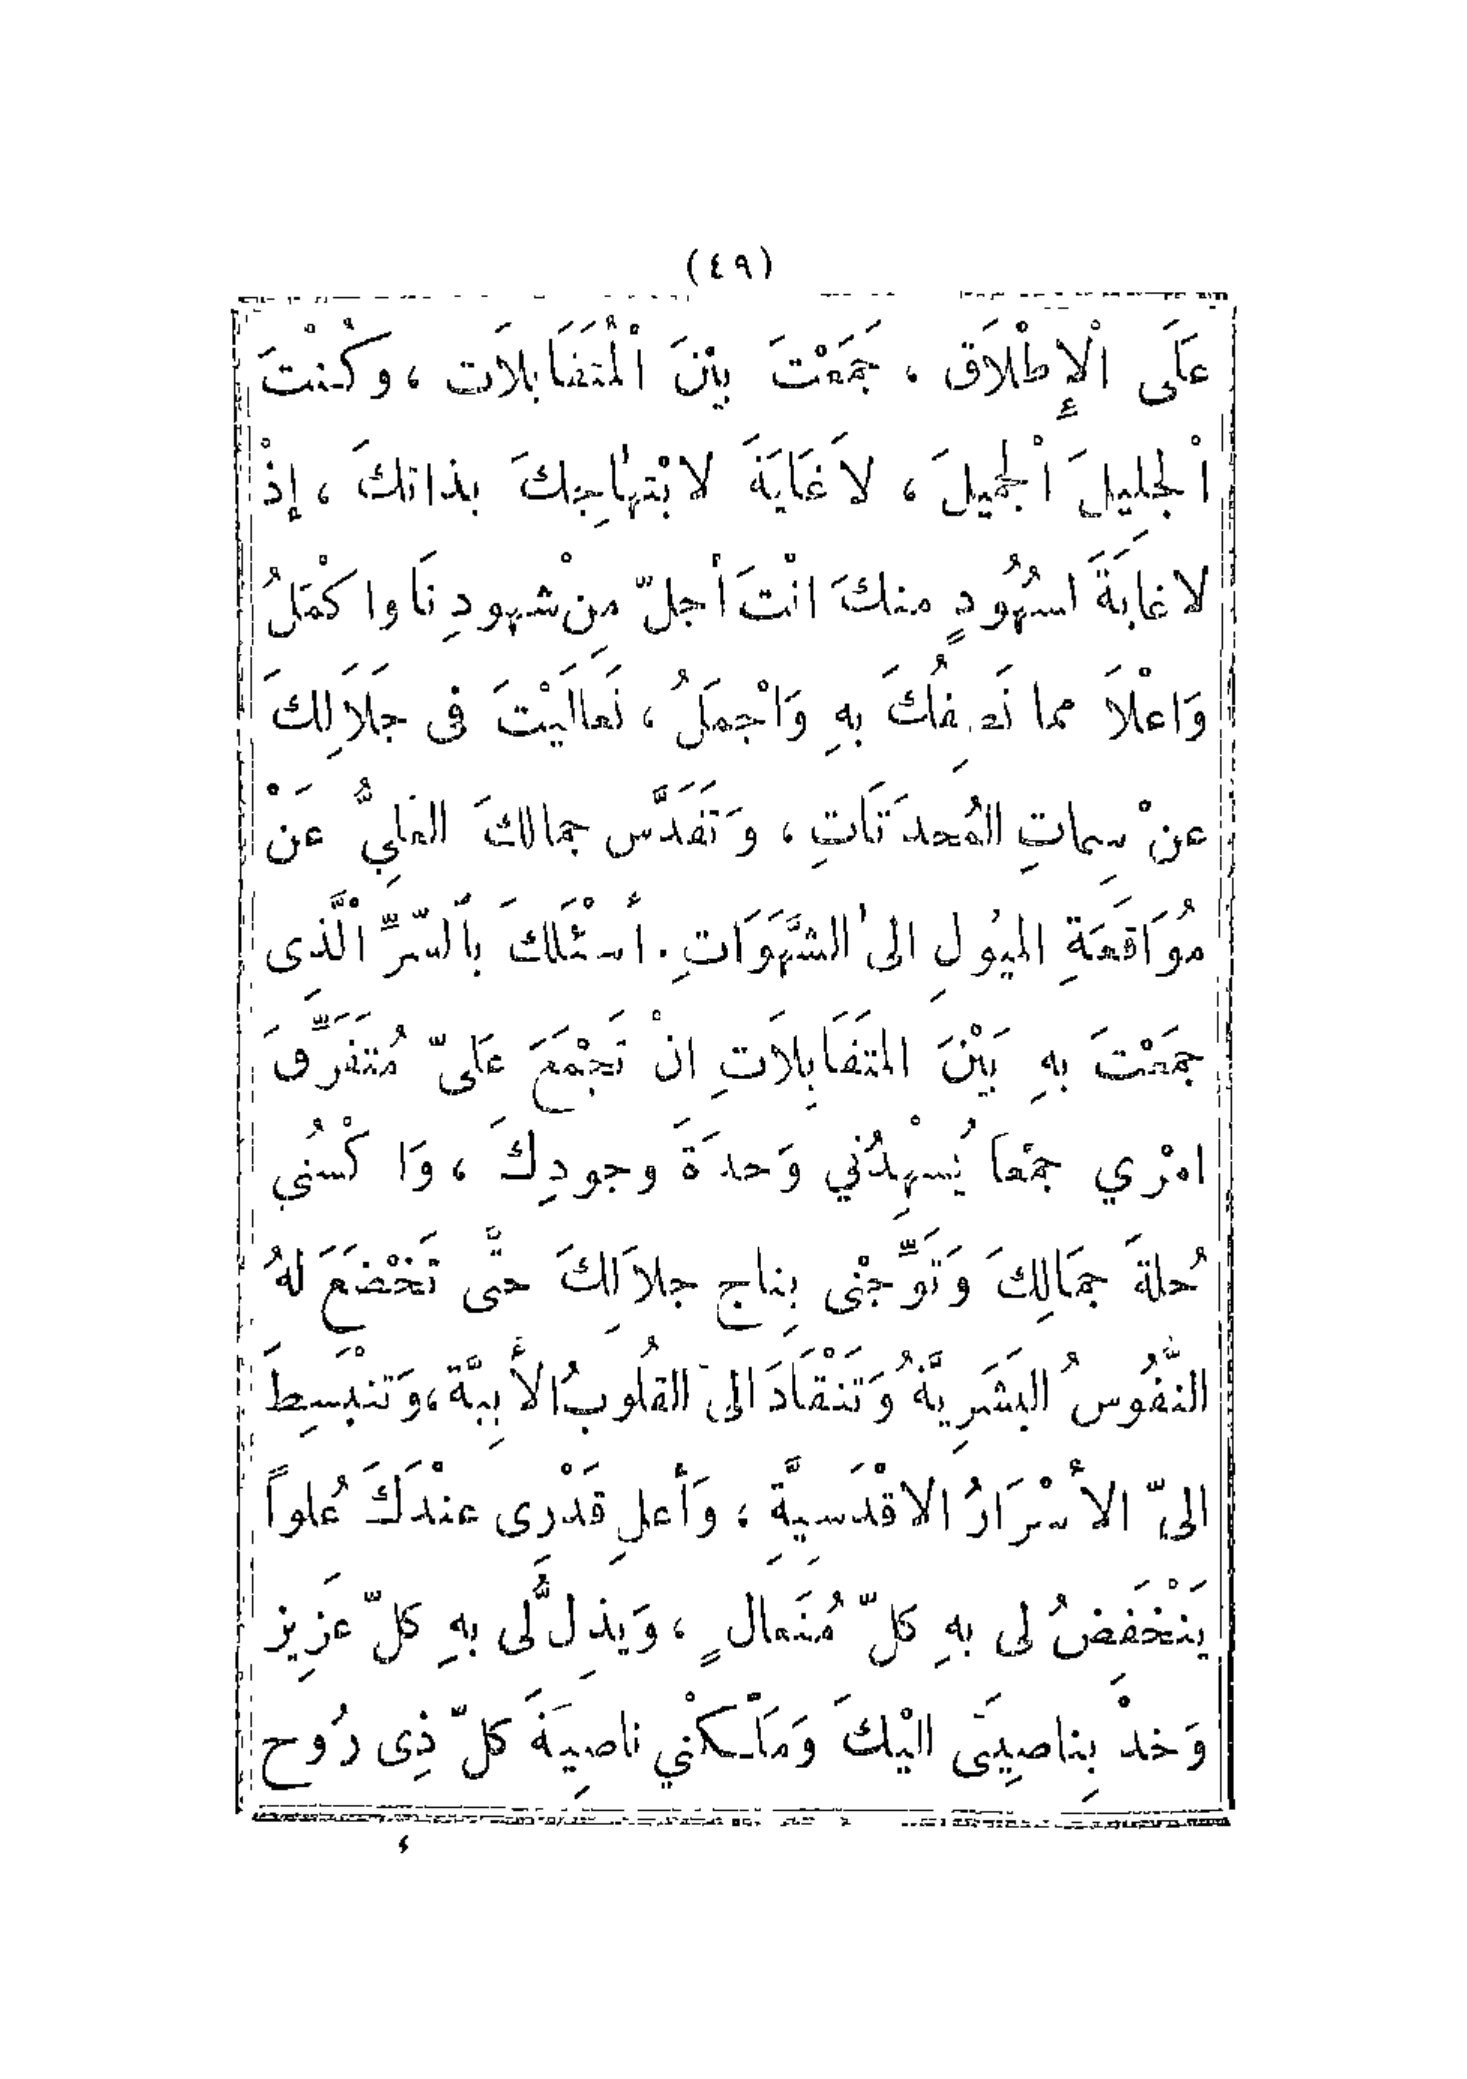 (٤٩)
عَلَى الْإِطْلَاق ، جَمَعْتَ بيْنَ الْمُتَقَابلَات ، وكُنْتَ
اْلجلِيلَ اْلجَمِيلَ ، لَا غَايَةَ لابْتهاجِكَ بذاتكَ ، إذْ
لا غايَةَ لشهُودٍ منكَ انْتَ أجلّ مِنْ شهودِنَا واكْمَلُ
وَاعْلَا مما نَصِفُكَ بهِ وَاْجملُ ، تَعالَيْتَ فى جلَالِكَ
عنْ سِماتِ المُحدَثَاتِ ، وَتَقَدَّس جمالكَ العَلِيُّ عَنْ
مُوَاقَعَةِ الميُولِ الى الشَّهَوَاتِ . أسْئَلكَ بالسّرِّ الَّذِى
جمَعْتَ بهِ بَيْنَ المتقَابِلَاتِ انْ تَجْمَعَ عَلىّ مُتَفَرِّقَ
امْري جمْعاً يُشْهِدُني وَحدَةَ وجودِكَ ، وَاكْسُني
حُلةَ جمَالِكَ وَتَوِّجْنى بِتاج جلَالِكَ حتَّى تَخْضَعَ لهُ
النُّفُوسُ البَشَرِيَّةُ وَتَنْقَادَ الىَّ القلُوبُ الأبِيَّة ، وَتنْبَسِطَ
الىّ الأسْرَارُ الاقْدَسِيَّةِ ، وَأعلِ قَدْرِى عنْدَكَ عُلواً
يَنْخَفِضُ لى بهِ كلّ مُتَعالٍ ، وَيذِلُّ لى بهِ كلّ عَزِيز
وَخذْ بِناصِيتَى اليْكَ وَمَلّكْني ناصِيَةَ كلّ ذِى رُوح
٤